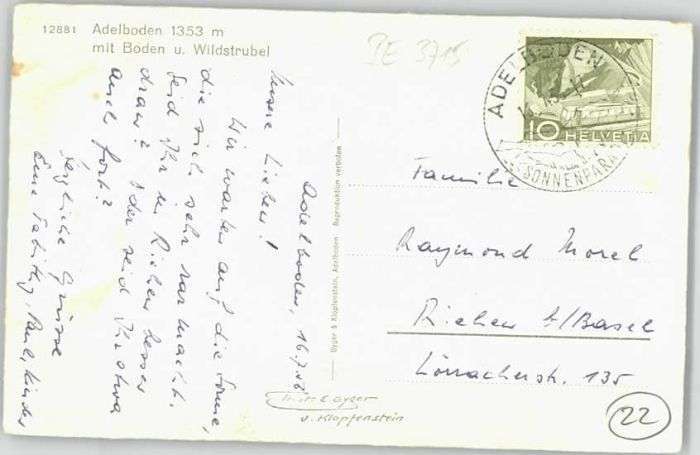 12881 Adelboden 1353 m
mit Boden u. Wildstrubel
Adelboden, 16.7.58
Unsere Lieben!
Wir warten auf die Sonne,
die sich sehr rar macht.
Seid Ihr in Riehen besser
dran? Oder seid Ihr etwa
auch fort?
Herzliche Grüsse
Eure Paul, Kinder
Gyger & Klopfenstein, Adelboden Reproduktion verboten
PE 3715
ADELBODEN
SONNENPARA
10 HELVETIA
Familie
Raymond Morel
Riehen b/Basel
Lörracherstr. 135
Gyger
u. Klopfenstein
22